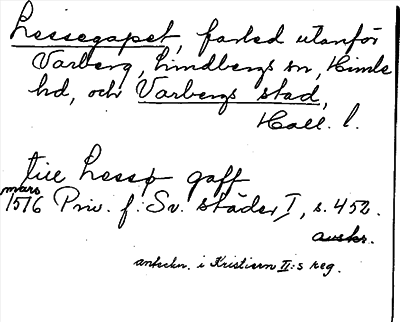 Lessegapet, farled utanför
Varberg, Lindbergs sn, Himle
hd, och Varbergs stad,
Hall. l.
till Lessø gaff
mars
1516 Priv. f. Sv. städer I, s. 452.
avskr.
anteckn. i Kristiern II:s reg.